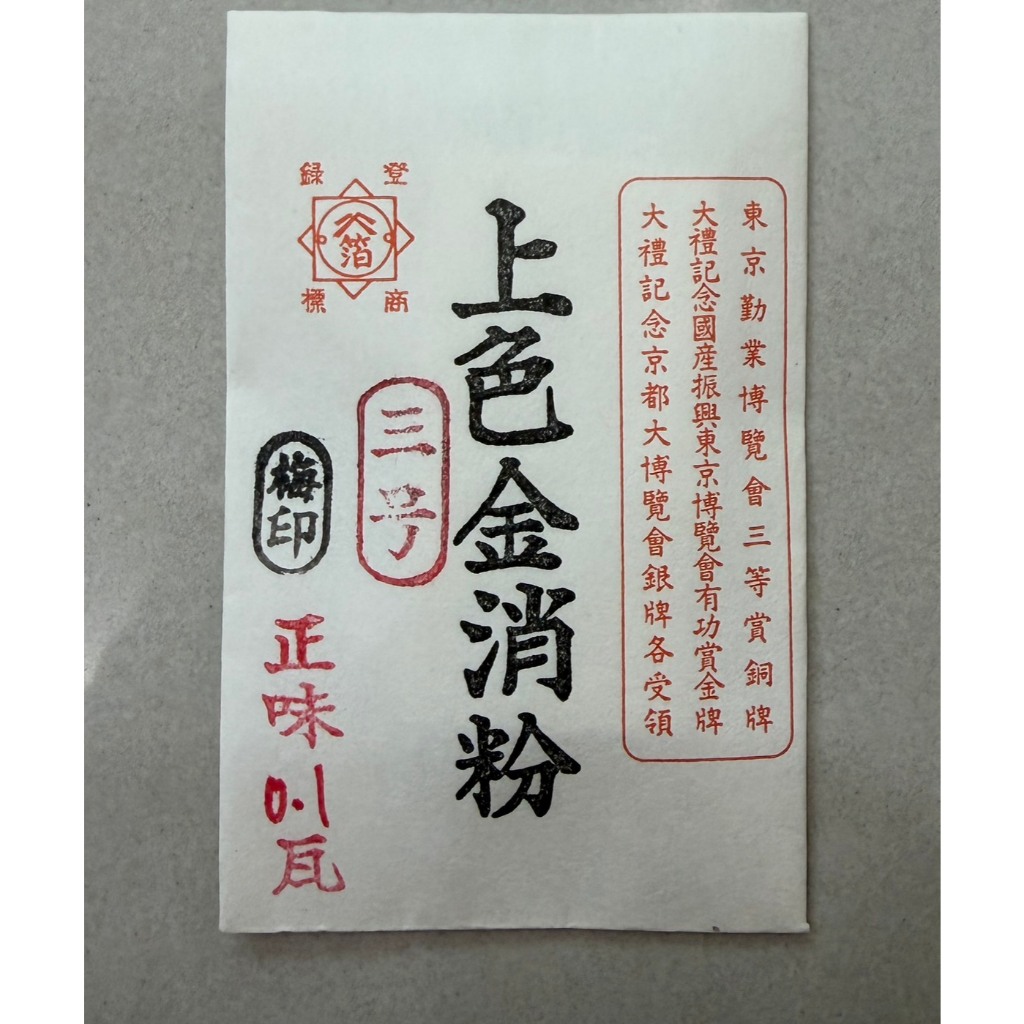 東京勤業博覽會三等賞銅牌
大禮記念國産振興東京博覽會有功賞金牌
大禮記念京都大博覽會銀牌各受領
上色金消粉
登録
商標
箔
三号
梅印
正味0.1瓦